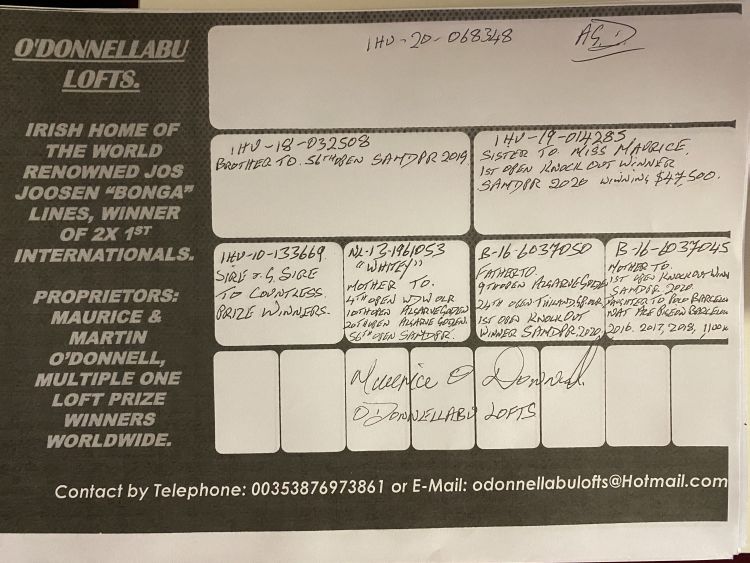 O'DONNELLABU
LOFTS.
IRISH HOME OF
THE WORLD
RENOWNED JOS
JOOSEN "BONGA"
LINES, WINNER
OF 2X 1ST
INTERNATIONALS.
PROPRIETORS:
MAURICE &
MARTIN
O'DONNELL,
MULTIPLE ONE
LOFT PRIZE
WINNERS
WORLDWIDE.
IHU-20-068348
IHU-18-032508
BROTHER TO. 56TH OPEN SAMDPR 2019
IHU-19-014285
SISTER TO MISS MAURICE.
1ST OPEN KNOCK OUT WINNER
SAMDPR 2020 WINNING $47,500.
IHU-10-133669
SIRE & G. SIRE
TO COUNTLESS
PRIZE WINNERS.
NL-13-1961053
"WHITEY"
MOTHER TO.
4TH OPEN WDWOLR
10TH OPEN ALGARVE GOLDEN
20TH OPEN ALGARVE GOLDEN.
56TH OPEN SAMDPR.
B-16-6037050
FATHER TO
9TH OPEN ALGARVE GOLDEN
24TH OPEN THILANDSPOLR
1ST OPEN KNOCK OUT
WINNER SAMDPR. 2020
B-16-6037045
MOTHER TO
1ST OPEN KNOCKOUT WINN
SAMDPR 2020.
DAUGHTER TO POCO BARCELON
NAT ACE PIGEON BARCELON
2016. 2017, 2018,
Maurice O Donnell
O'DONNELLABU LOFTS
Contact by Telephone: 00353876973861 or E-Mail: odonnellabulofts@Hotmail.com